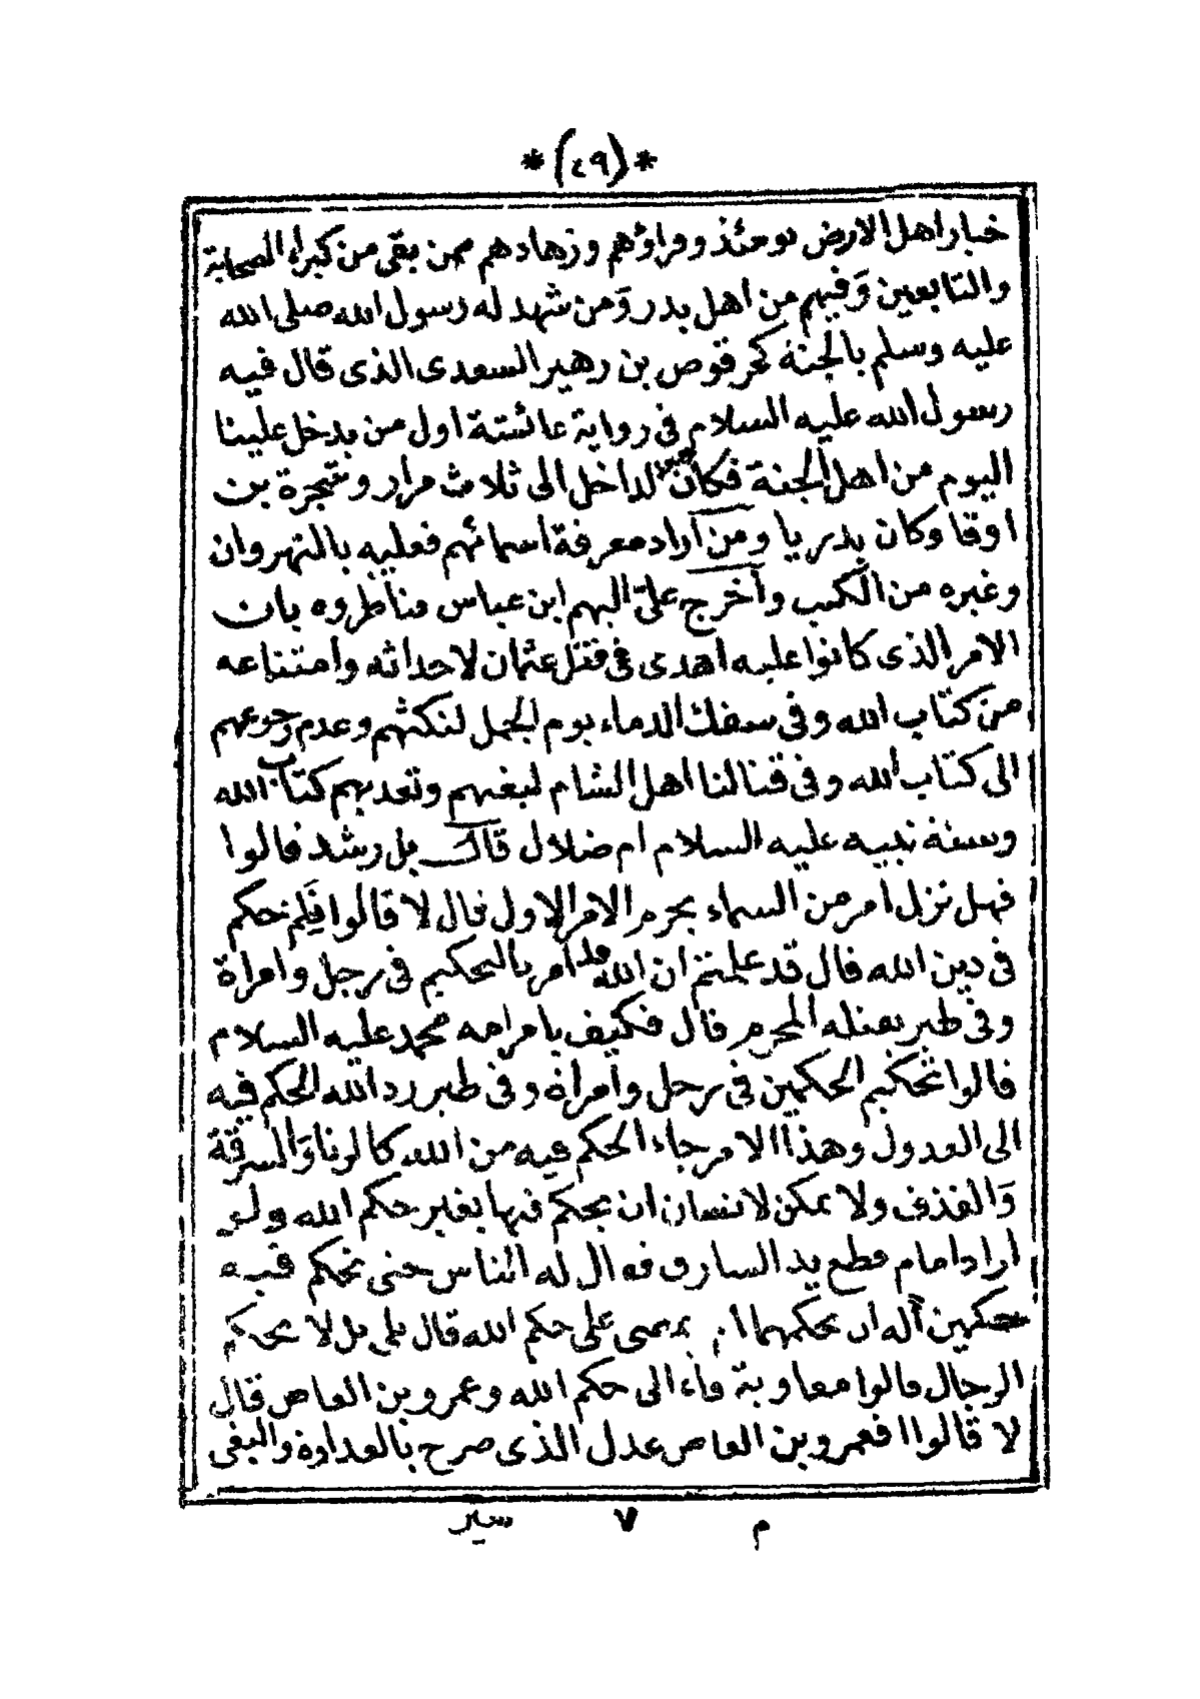 *(٤٩)*
خيار اهل الارض يومئذ وقراؤهم وزهادهم ممن بقى من كبراء الصحابة
والتابعين وفيهم من اهل بدر ومن شهد له رسول الله صلى الله
عليه وسلم بالجنة كحرقوص بن زهير السعدى الذى قال فيه
رسول الله عليه السلام فى رواية عائشة اول من يدخل علينا
اليوم من اهل الجنة فكان الداخل الى ثلاث مرار وشجرة بن
اوفا وكان بدريا ومن اراد معرفة اسمائهم فعليه بالنهروان
وغيره من الكتب وأخرج علىّ اليهم ابن عباس فناظروه بان
الامر الذى كانوا عليه اهدى فى قتل عثمان لاحداثه وامتناعه
من كتاب الله وفى سفك الدماء يوم الجمل لنكثهم وعدم رجوعهم
الى كتاب الله وفى قتالنا اهل الشام لبغيهم وتعديهم كتاب الله
وسنة نبيه عليه السلام ام ضلال قال بل رشد قالوا
فهل نزل امر من السماء بحرم الامر الاول قال لا قالوا فلم نحكم
فى دين الله قال قد علمتم ان الله قد امر بالتحكيم فى رجل وامراة
وفى طير يقتله المحرم قال فكيف يا مراحه محمد عليه السلام
قالوا تحكيم الحكمين فى رجل وامراة وفى طير رد الله الحكم فيه
الى العدول وهذا الامر جاء الحكم فيه من الله كالزنا والسرقة
والقذف ولا يمكن لانسان ان يحكم فيها بغير حكم الله ولو
اراد امام قطع يد السارق فقال له الناس حتى نحكم فيه
حكمين أله ان يحكمهما ام يمضى على حكم الله قال بلى بل لا يحكم
الرجال قالوا معاوية فاء الى حكم الله وعمرو بن العاص قال
لا قالوا افعمرو بن العاص عدل الذى صرح بالعداوة والبغى
م ٧ سير